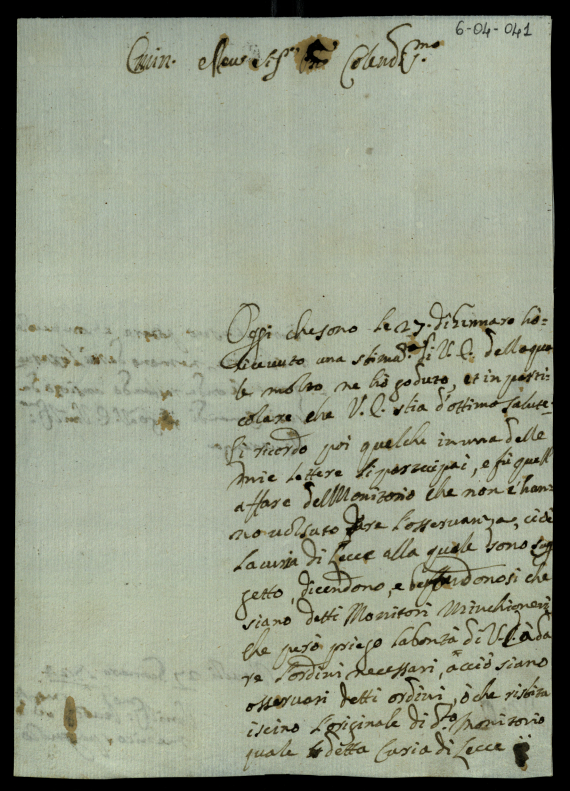 6-04-041
Colend.mo
Oggi che sono le 27. di Gennaro hò
riceuuto una stimat.ma di V.E. della qua
le molto ne hò goduto, et in parti
colare che V.E. stia d'ottima salute.
Li ricordo poi quelche in una delle
mie lettere li partecipai, e fù quell
affare del Monitorio che non l'han
no uolsuto dare l'osservanza, cioè
la curia di Lecce alla quale sono sog
getto, dicendono, e beffandonosi che
siano detti Monitori Minchionerie
che però priego la bontà di V.E. à da
re l'ordini necessari, acciò siano
osservati detti ordini, ò che ristitu
iscino l'originale di d.to monitorio
quale detta Curia di Lecce